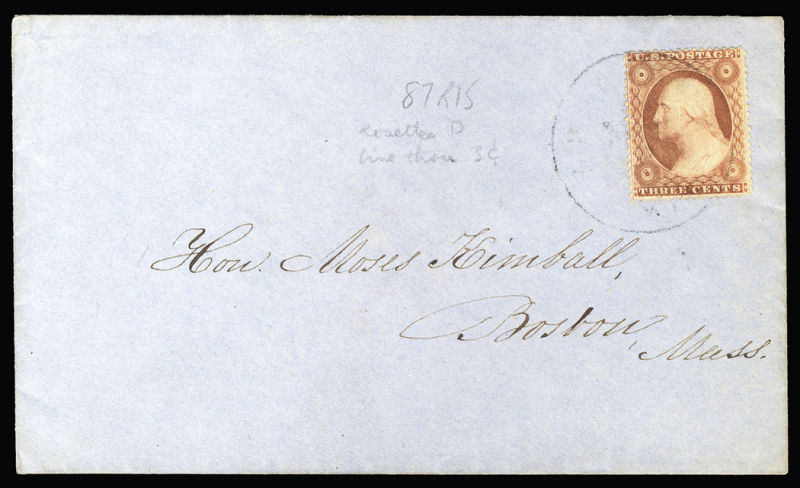 U.S. POSTAGE
THREE CENTS
87R15
rosettes D
line thru 3¢
Hon. Moses Kimball,
Boston,
Mass.